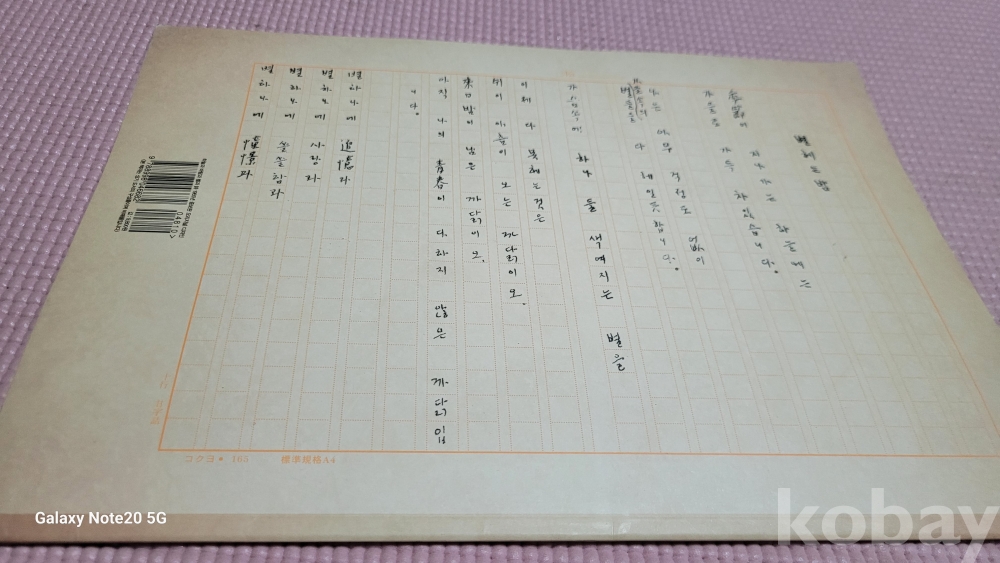 별헤는밤
季節이 지나가는 하늘에는
가을로 가득 차있습니다.
나는 아무 걱정도 없이
별들을 다 헤일듯합니다.
가슴속에 하나 둘 색여지는 별을
이제 다 못헤는것은
쉬이 아츰이 오는 까닭이오,
來日밤이 남은 까닭이오,
아직 나의 靑春이 다하지 않은 까닭입
니다.
별하나에 追憶과
별하나에 사랑과
별하나에 쓸쓸함과
별하나에 憧憬과
04810>
コクヨ 165 標準規格A4
Galaxy Note20 5G
kobay